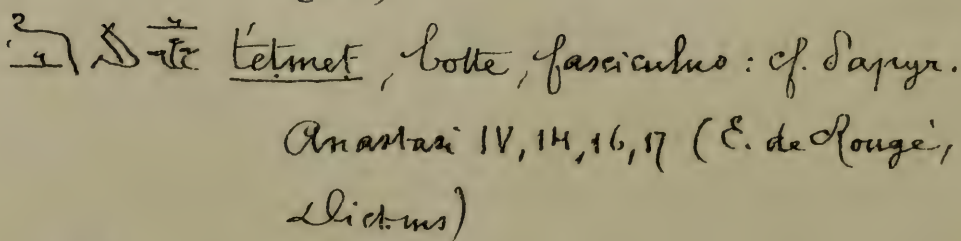 t'etmet, botte, fasciculus : cf. Papyr.
Anastasi IV, 14, 16, 17 (E. de Rougé,
Dict. ms)